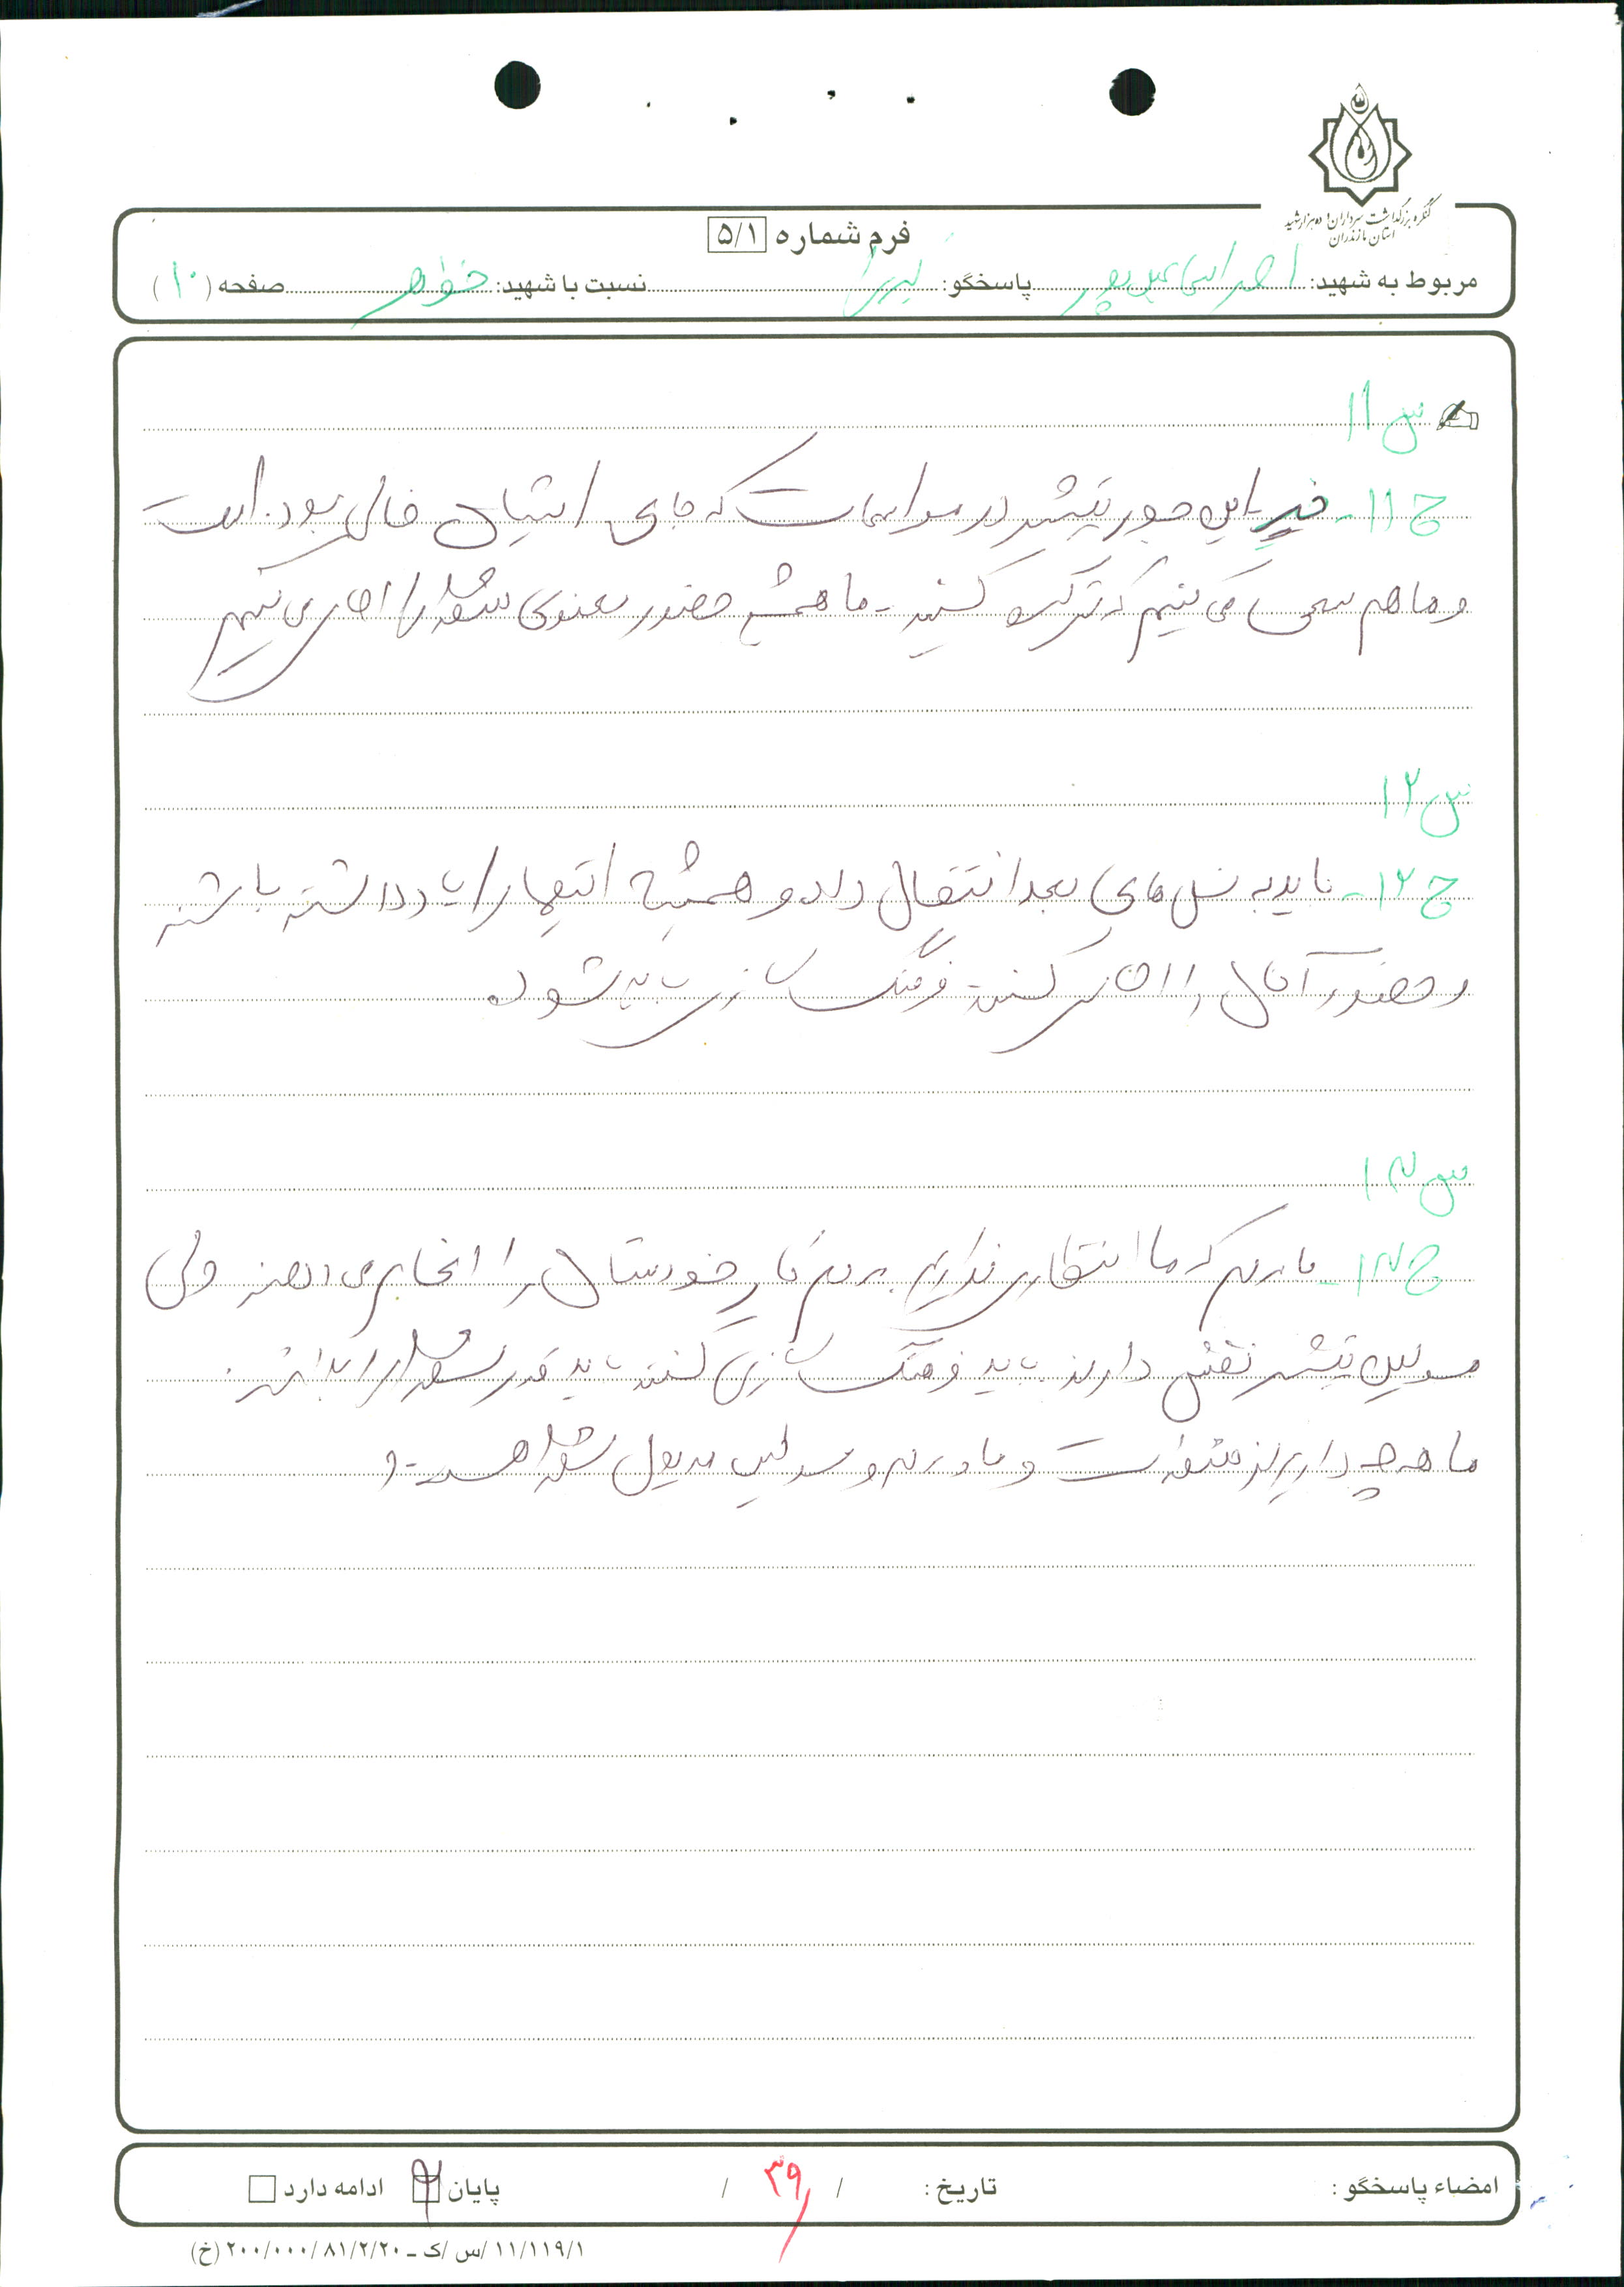 کنگره بزرگداشت سرداران و ده هزار شهید
استان مازندران
فرم شماره ۵/۱
مربوط به شهید: احمد اسماعیل پور پاسخگو: نسبت با شهید: خواهر صفحه (۱۰)
س۱۱
ج۱۱- خیر این جور بیشتر در مراسمات که جای ایشان خالی بوده است
و ما هم سعی می کنیم که شرکت کنیم - ما همیشه حضور معنوی شهدا را احساس می کنیم
س۱۲
ج۱۲- باید به نسل های بعد انتقال داد و همیشه اینها را یاد داشته باشند
و حضور آنان را احساس کنند فرهنگ سازی باید شود
س۱۳
ج۱۳- مردم که ما انتظاری نداریم مردم کار خودشان را انجام می دهند ولی
مسولین بیشتر نقش دارند باید فرهنگ سازی کنند باید قدر شهدا را بدانند
ما هر چه داریم از شهداست و ما و مردم و مسولین مدیون شهدا هستند
امضاء پاسخگو : تاریخ : / / پایان ادامه دارد
۳۹
۱۱/۱۱۹/۱ /س /ک ـ ۸۱/۲/۲۰ /۲۰۰/۰۰۰ (خ)